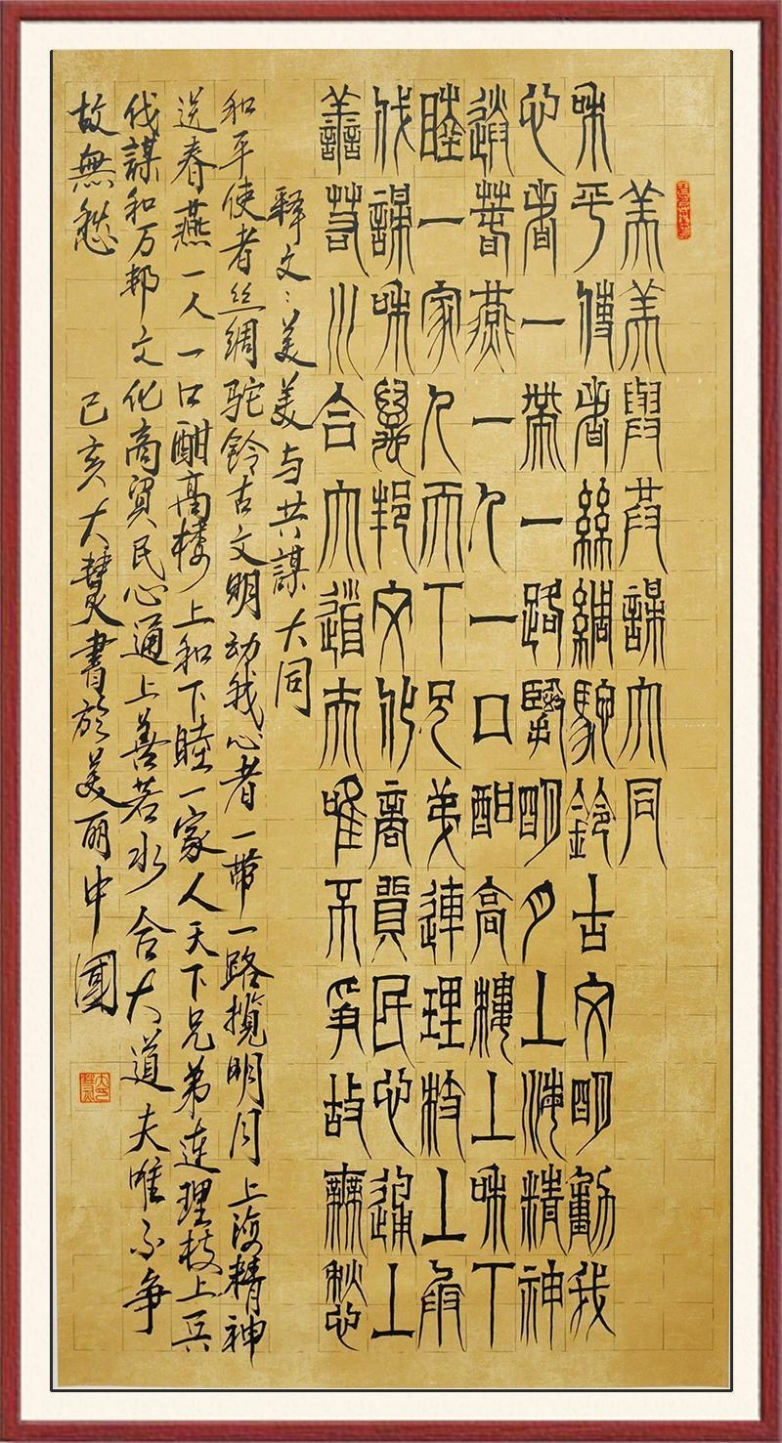 美美與共謀大同
和平使者絲綢駝鈴古文明動我
心者一帶一路擥明月上海精神
送春燕一人一口酣高樓上和下
睦一家人天下兄弟連理枝上兵
伐謀和萬邦文化商貿民心通上
善若水合大道夫唯不爭故無愁
释文：美美与共謀大同
和平使者丝綢駝鈴古文明动我心者一带一路揽明月上海精神
送春燕一人一口酣高楼上和下睦一家人天下兄弟连理枝上兵
伐謀和万邦文化商贸民心通上善若水合大道夫唯不争
故無愁 己亥大書於美丽中國